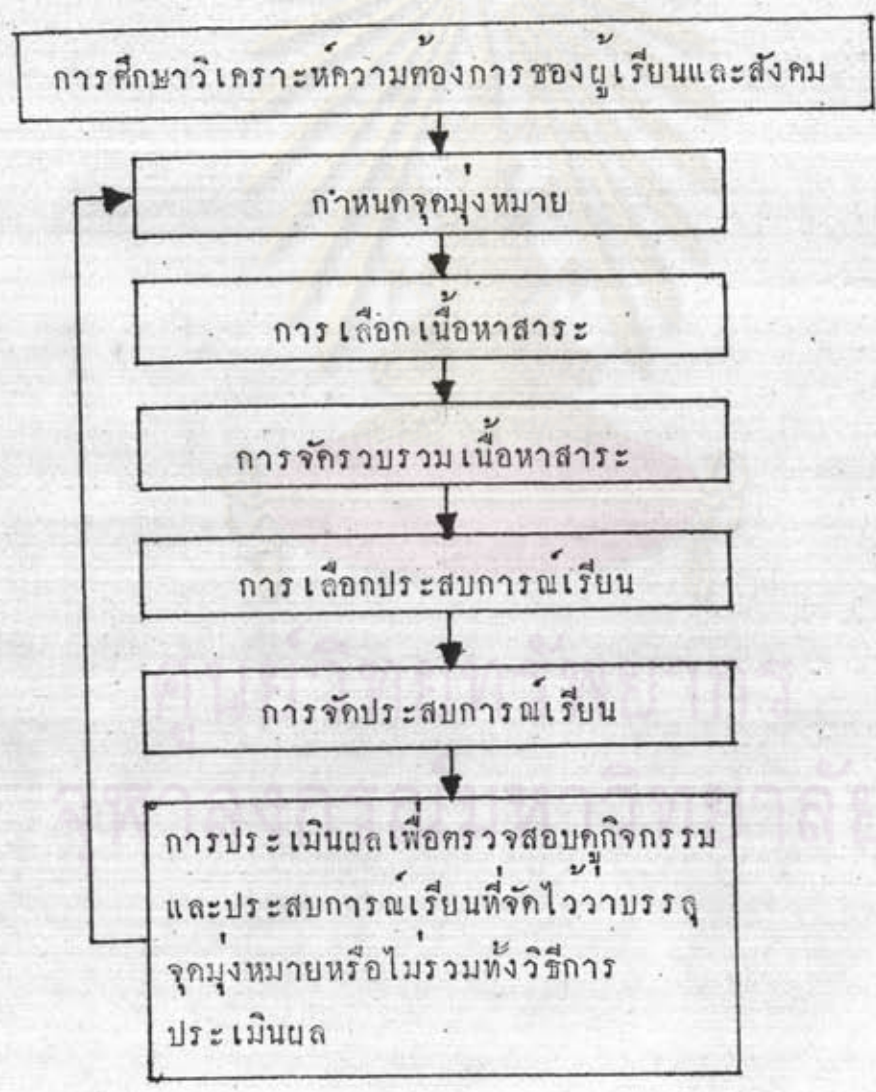 การศึกษาวิเคราะห์ความต้องการของผู้เรียนและสังคม
กำหนดจุดมุ่งหมาย
การเลือกเนื้อหาสาระ
การจัดรวบรวมเนื้อหาสาระ
การเลือกประสบการณ์เรียน
การจัดประสบการณ์เรียน
การประเมินผลเพื่อตรวจสอบดูกิจกรรม
และประสบการณ์เรียนที่จัดไว้ว่าบรรลุ
จุดมุ่งหมายหรือไม่รวมทั้งวิธีการ
ประเมินผล